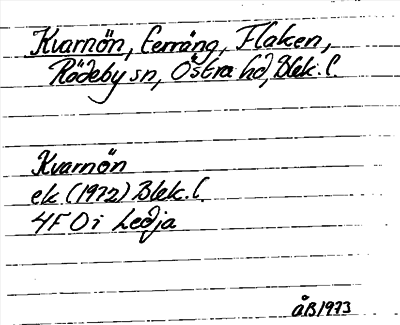 Kvarnön, terräng, Flaken,
Rödeby sn, Östra hd, Blek. l.
Kvarnön
ek (1972) Blek. l.
4F 0i Ledja
ÅB 1973